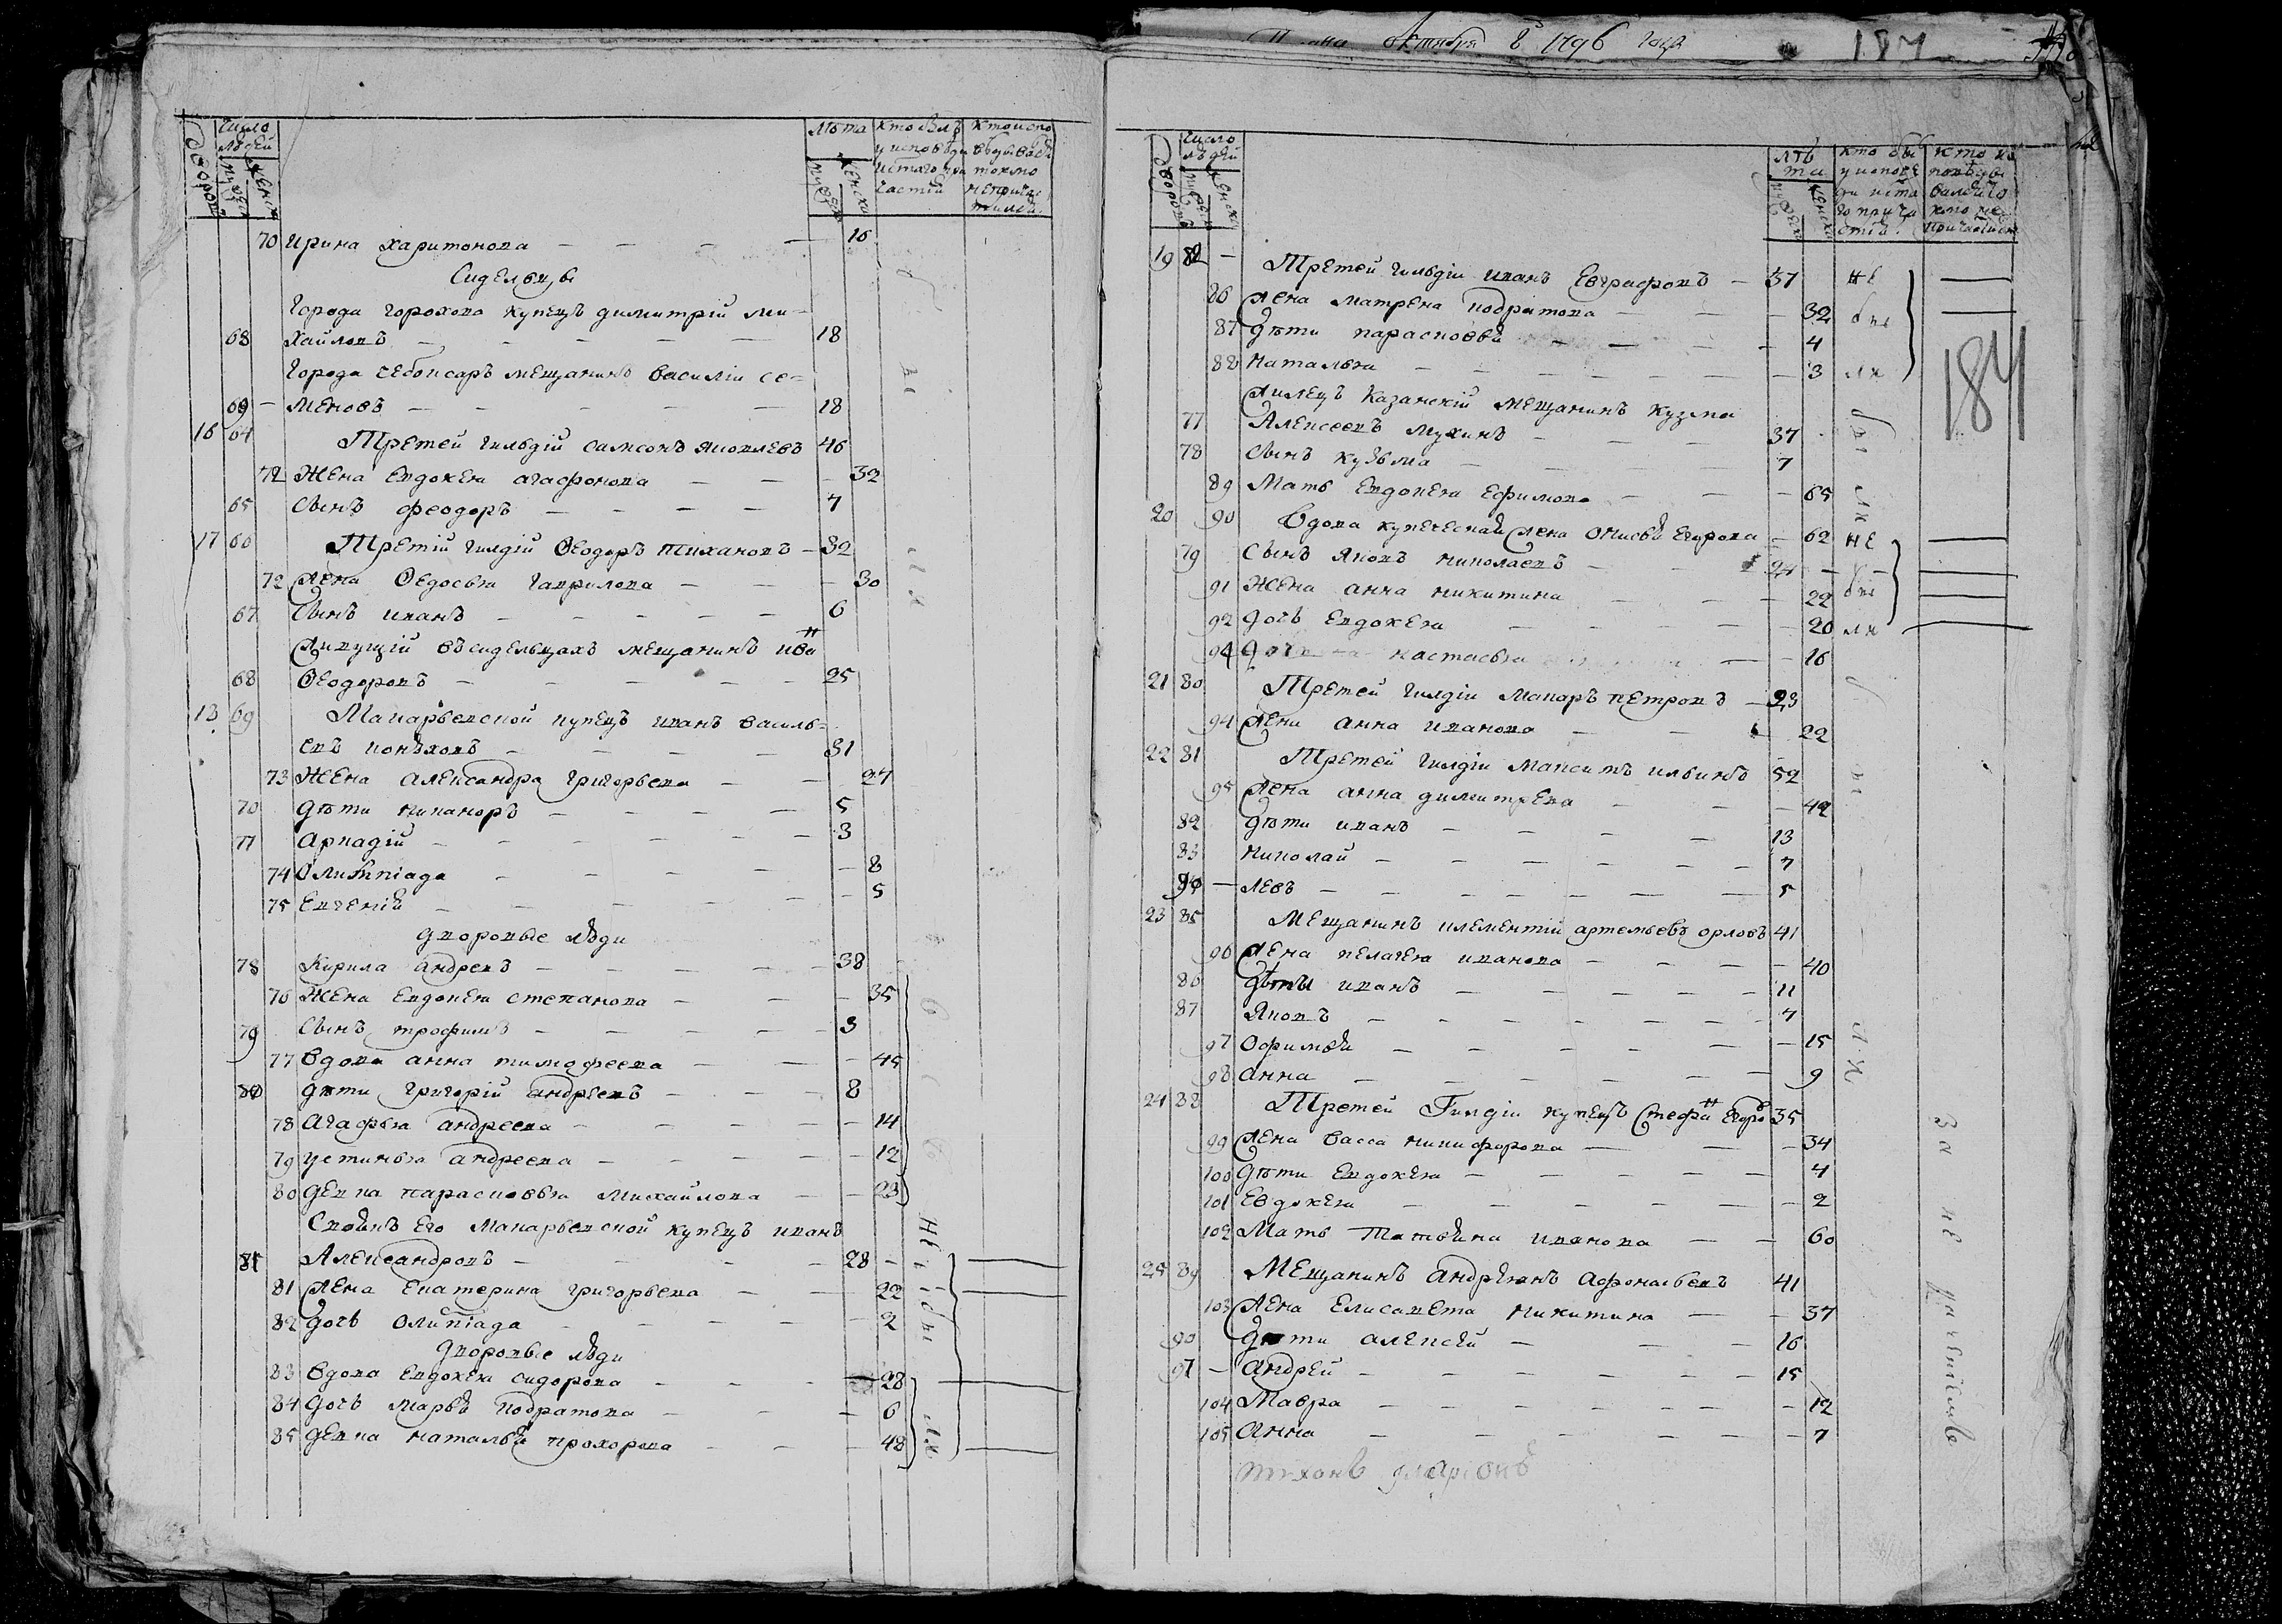 октября 8 1796 года
184
дворовъ
число людей
мужеск
женск
лѣта
мужеск
женска
кто былъ у исповѣди и стаго прачастія
кто испо ведывался токмо непричастился
70 Ирина Харитонова — 16
Сидельцы
Города Горохова купецъ Димитрій Ми-
68 хайловъ — 18
Города Чебоксаръ мещанинъ Василій Се-
69 — меновъ — 18
16 64 Третей гильдіи Самсонъ Яковлевъ 46
72 Жена Евдокея Агафонова — 32
65 Сынъ Феодоръ — 7
17 60 Третій гилдіи Ѳеодоръ Тихановъ — 32
72 Жена Ѳедосья Гаврилова — 30
67 Сынъ Иванъ — 6
Живущій въ сидельцахъ мещанинъ Иванъ
68 Ѳеодоровъ — 25
13 69 Макарьевской купецъ Иванъ Василь-
евъ — 31
73 Жена Александра Григорьева — 27
70 Дѣти Никаноръ — 5
77 Аркадій — 3
74 Олимпіада — 8
75 Евгенія — 5
Дворовые люди
78 Кирила Андреевъ — 38
76 Жена Евдокея Степанова — 35
79 Сынъ Трофимъ — 3
77 Вдова Анна Тимофеева — 45
80 Дѣти Григорій Андреевъ — 8
78 Агафья Андреева — 14
79 Устинья Андреева — 12
80 Девка Парасковья Михайлова — 23
Своякъ его Макарьевской купецъ Иванъ
81 Александровъ — 28
81 Жена Екатерина Григорьева — 22
82 Дочь Олимпіада — 2
Дворовые люди
83 Вдова Евдокея Сидорова — 28
84 Дочь Марья Кодратова — 6
85 Девка Наталья Прохорова — 48
дворовъ
число людей
мужеск
женска
лѣта
мужеска
женска
19 Третей гильдіи Иванъ Евграфовъ — 37 не
86 Жена Матрена Кодратова — 32
87 Дѣти Парасковья — 4
88 Наталья — 3
Жилецъ Казанскій мещанинъ Кузма
77 Алексеевъ Мухинъ — 37
78 Сынъ Кузьма — 7
89 Мать Евдокея Ефимова — 65
20 90 Вдова купеческая жена Егорова — 62 не
79 Сынъ Яковъ Николаевъ — 24
91 Жена Анна Никитина — 22
92 Дочь Евдокея — 20
94 Настасья — 16
21 80 Третей гилдіи Макаръ Петровъ — 23
94 Жена Анна Иванова — 22
22 81 Третей гилдіи Максимъ Ильинъ 52
95 Жена Анна Димитрева — 42
82 Дѣти Иванъ — 13
83 Николай — 7
Левъ — 5
23 85 Мещанинъ Клементій Артемьевъ Орловъ 41
96 Жена Пелагея Иванова — 40
86 Дѣти Иванъ — 11
87 Яковъ — 7
97 Офимья — 15
98 Анна — 9
24 88 Третей Гилдіи купецъ Стефанъ Егоровъ 35
99 Жена Васса Никифорова — 34
100 Дѣти Евдокея — 4
101 Евдокея — 2
102 Мать Татьяна Иванова — 60
25 89 Мещанинъ Андреянъ Афонасьевъ 41
103 Жена Елисавета Никитина — 37
90 Дѣти Алексей — 16
91 — Андрей — 15
104 Мавра — 12
105 Анна — 7
184